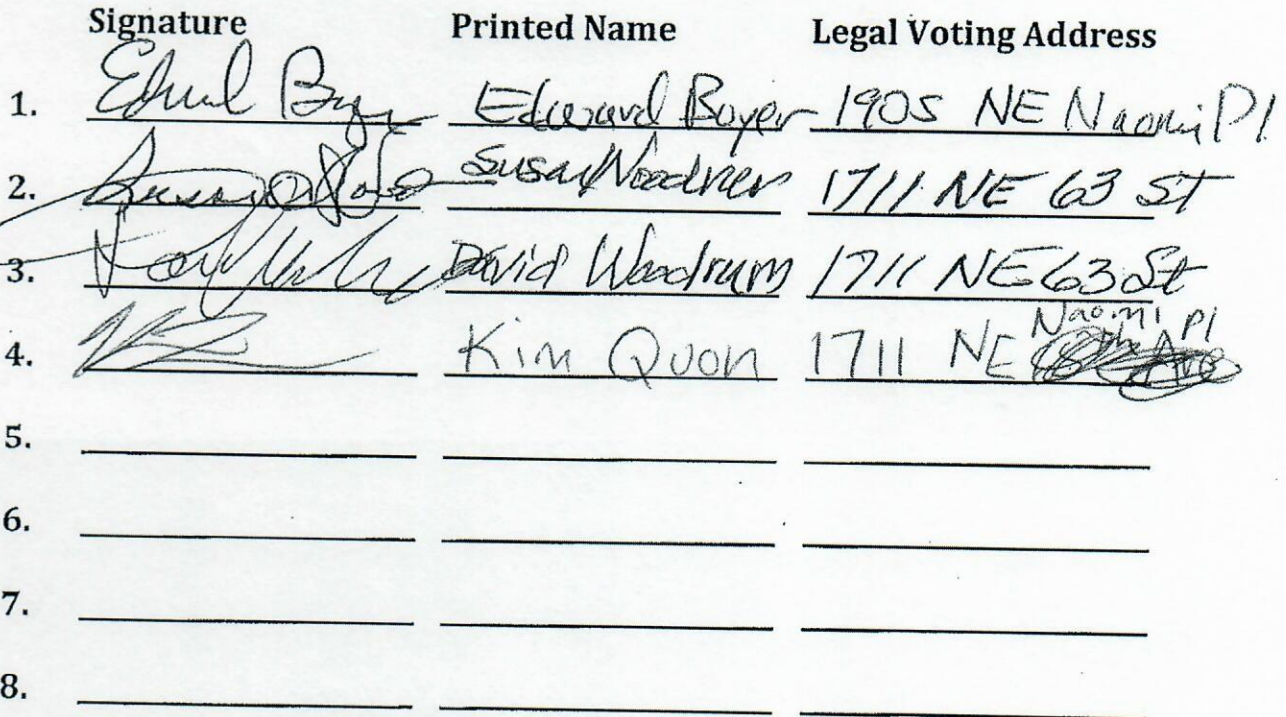 Signature Printed Name Legal Voting Address
1. Edward Boyer 1905 NE Naomi Pl
2. Susan 1711 NE 63 St
3. David Woodrum 1711 NE 63 St
4. Kim Quon 1711 NE Naomi Pl
5.
6.
7.
8.